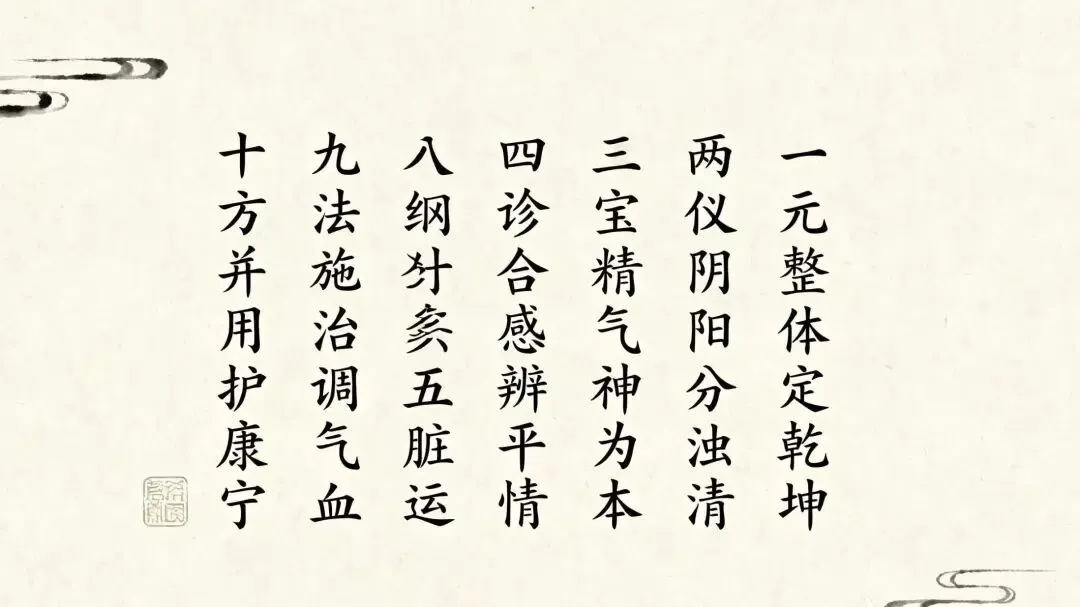 一元整体定乾坤
两仪阴阳分浊清
三宝精气神为本
四诊合感辨平情
八纲五脏运
九法施治调气血
十方并用护康宁